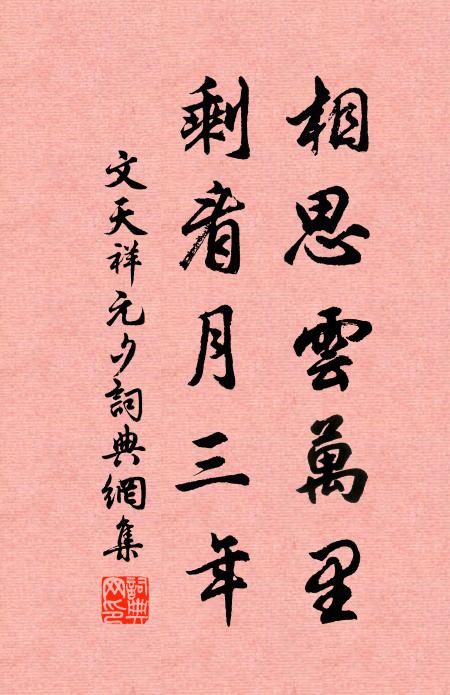 相思雲萬里
剩看月三年
文天祥元夕詞典網集
詞典网印